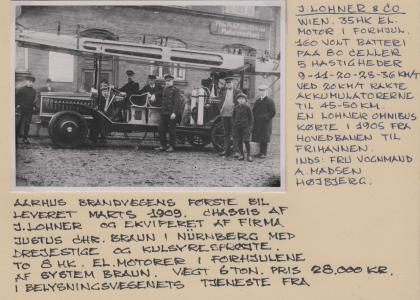 J. LOHNER & CO
WIEN. 35HK EL.
MOTOR I FORHJUL.
160 VOLT BATTERI
PAA 80 CELLER
5 HASTIGHEDER
9-11-20-28-36 KM/T
VED 20KM/T RAKTE
AKKUMULATORERNE
TIL 45-50KM.
EN LOHNER OMNIBUS
KØRTE I 1905 FRA
HOVEDBANEN TIL
FRIHAVNEN.
INDS: FRU VOGNMAND
A. MADSEN
HØJBJERG.
AARHUS BRANDVÆSENS FØRSTE BIL
LEVERET MARTS 1909. CHASSIS AF
J. LOHNER OG EKVIPERET AF FIRMA
JUSTUS CHR. BRAUN I NÜRNBERG MED
DREJESTIGE OG KULSYRESPRØJTE.
TO 8 HK. EL. MOTORER I FORHJULENE
AF SYSTEM BRAUN. VÆGT 6 TON. PRIS 28,000 KR.
I BELYSNINGSVÆSENETS TJENESTE FRA